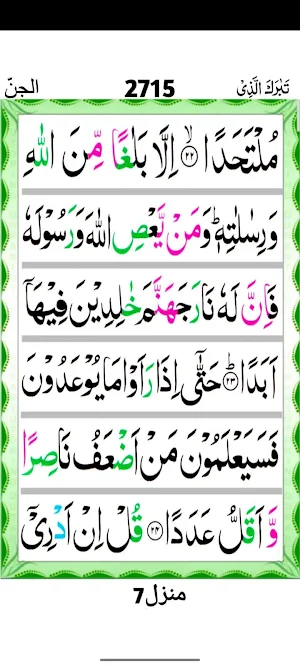 تَبٰرَكَ الَّذِىْ 2715 الجنّ
مُلْتَحَدًا ۙ‏﴿۲۲﴾ اِلَّا بَلٰغًا مِّنَ اللّٰهِ
وَرِسٰلٰتِهٖ‌ ؕ وَمَنْ يَّعْصِ اللّٰهَ وَرَسُوْلَهٗ
فَاِنَّ لَهٗ نَارَ جَهَنَّمَ خٰلِدِيْنَ فِيْهَاۤ
اَبَدًا ؕ‏﴿۲۳﴾ حَتّٰٓى اِذَا رَاَوْا مَا يُوْعَدُوْنَ
فَسَيَعْلَمُوْنَ مَنْ اَضْعَفُ نَاصِرًا
وَّاَقَلُّ عَدَدًا‏ ﴿۲۴﴾ قُلْ اِنْ اَدْرِىْۤ
منزل7